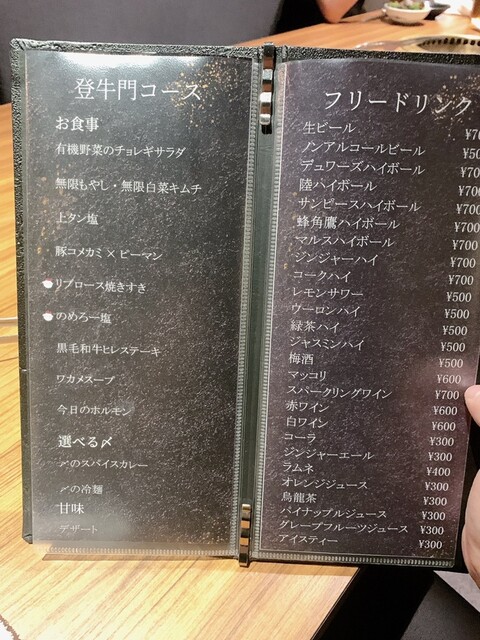 登牛門コース
お食事
有機野菜のチョレギサラダ
無限もやし・無限白菜キムチ
上タン塩
豚コメカミ×ピーマン
リブロース焼きすき
のめろー塩
黒毛和牛ヒレステーキ
ワカメスープ
今日のホルモン
選べる〆
〆のスパイスカレー
〆の冷麺
甘味
デザート
フリードリンク
生ビール
ノンアルコールビール
デュワーズハイボール ¥700
陸ハイボール ¥700
サンピースハイボール ¥700
蜂角鷹ハイボール ¥700
マルスハイボール ¥700
ジンジャーハイ ¥700
コークハイ ¥700
レモンサワー ¥500
ウーロンハイ ¥500
緑茶ハイ ¥500
ジャスミンハイ ¥500
梅酒 ¥500
マッコリ ¥600
スパークリングワイン ¥700
赤ワイン ¥600
白ワイン ¥600
コーラ ¥300
ジンジャーエール ¥300
ラムネ ¥400
オレンジジュース ¥300
烏龍茶 ¥300
パイナップルジュース ¥300
グレープフルーツジュース ¥300
アイスティー ¥300